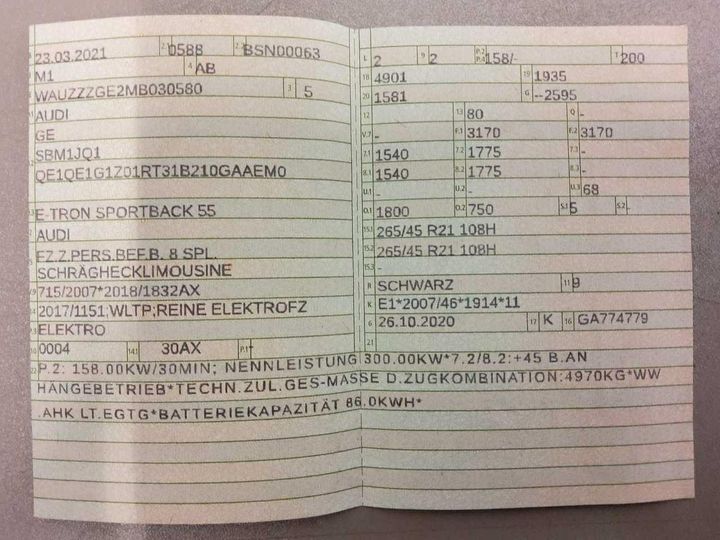 23.03.2021 2.1 0588 2.2 BSN00063
M1 4 AB
WAUZZZGE2MB030580 3 5
AUDI
GE
SBM1JQ1
QE1QE1G1Z01RT31B210GAAEM0
E-TRON SPORTBACK 55
AUDI
FZ.Z.PERS.BEF.B. 8 SPL.
SCHRÄGHECKLIMOUSINE
715/2007*2018/1832AX
2017/1151;WLTP;REINE ELEKTROFZ
ELEKTRO
10 0004 14.1 30AX P.1
L 2 9 2 P.2 P.4 158/- T 200
18 4901 19 1935
20 1581 G --2595
12 - 13 80 Q -
V.7 - F.1 3170 F.2 3170
7.1 1540 7.2 1775 7.3 -
8.1 1540 8.2 1775 8.3 -
U.1 - U.2 - U.3 68
O.1 1800 O.2 750 S.1 5 S.2 -
15.1 265/45 R21 108H
15.2 265/45 R21 108H
15.3 -
R SCHWARZ 11 9
K E1*2007/46*1914*11
6 26.10.2020 17 K 16 GA774779
21
22 P.2: 158.00KW/30MIN; NENNLEISTUNG 300.00KW*7.2/8.2:+45 B.AN
HÄNGEBETRIEB*TECHN.ZUL.GES-MASSE D.ZUGKOMBINATION:4970KG*WW
.AHK LT.EGTG*BATTERIEKAPAZITÄT 86.0KWH*